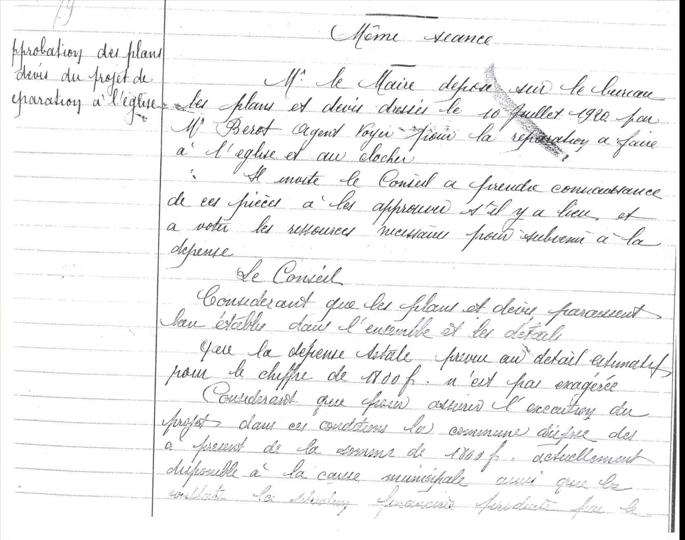 Même séance
pprobation des plans
devis du projet de
éparation à l'église
Mr le Maire depose sur le bureau
les plans et devis dressés le 10 Juillet 1920 par
Mr Berot Agent Voyer pour la reparation a faire
à l'eglise et au clocher
Il invite le Conseil a prendre connaissance
de ces pièces à les approuver s'il y a lieu et
a voter les ressources necessaires pour subvenir à la
depense
Le Conseil
Considerant que les plans et devis paraissent
bien établis dans l'ensemble et les détails
Que la dépense totale prevue au detail estimatif
pour le chiffre de 1800 f. n'est pas exagérée
Considerant que pour assurer l'execution du
projet dans ces conditions la commune dispose des
a present de la somme de 1800 f. actuellement
disponible à la caisse municipale ainsi que le
constate la situation financière produite par le